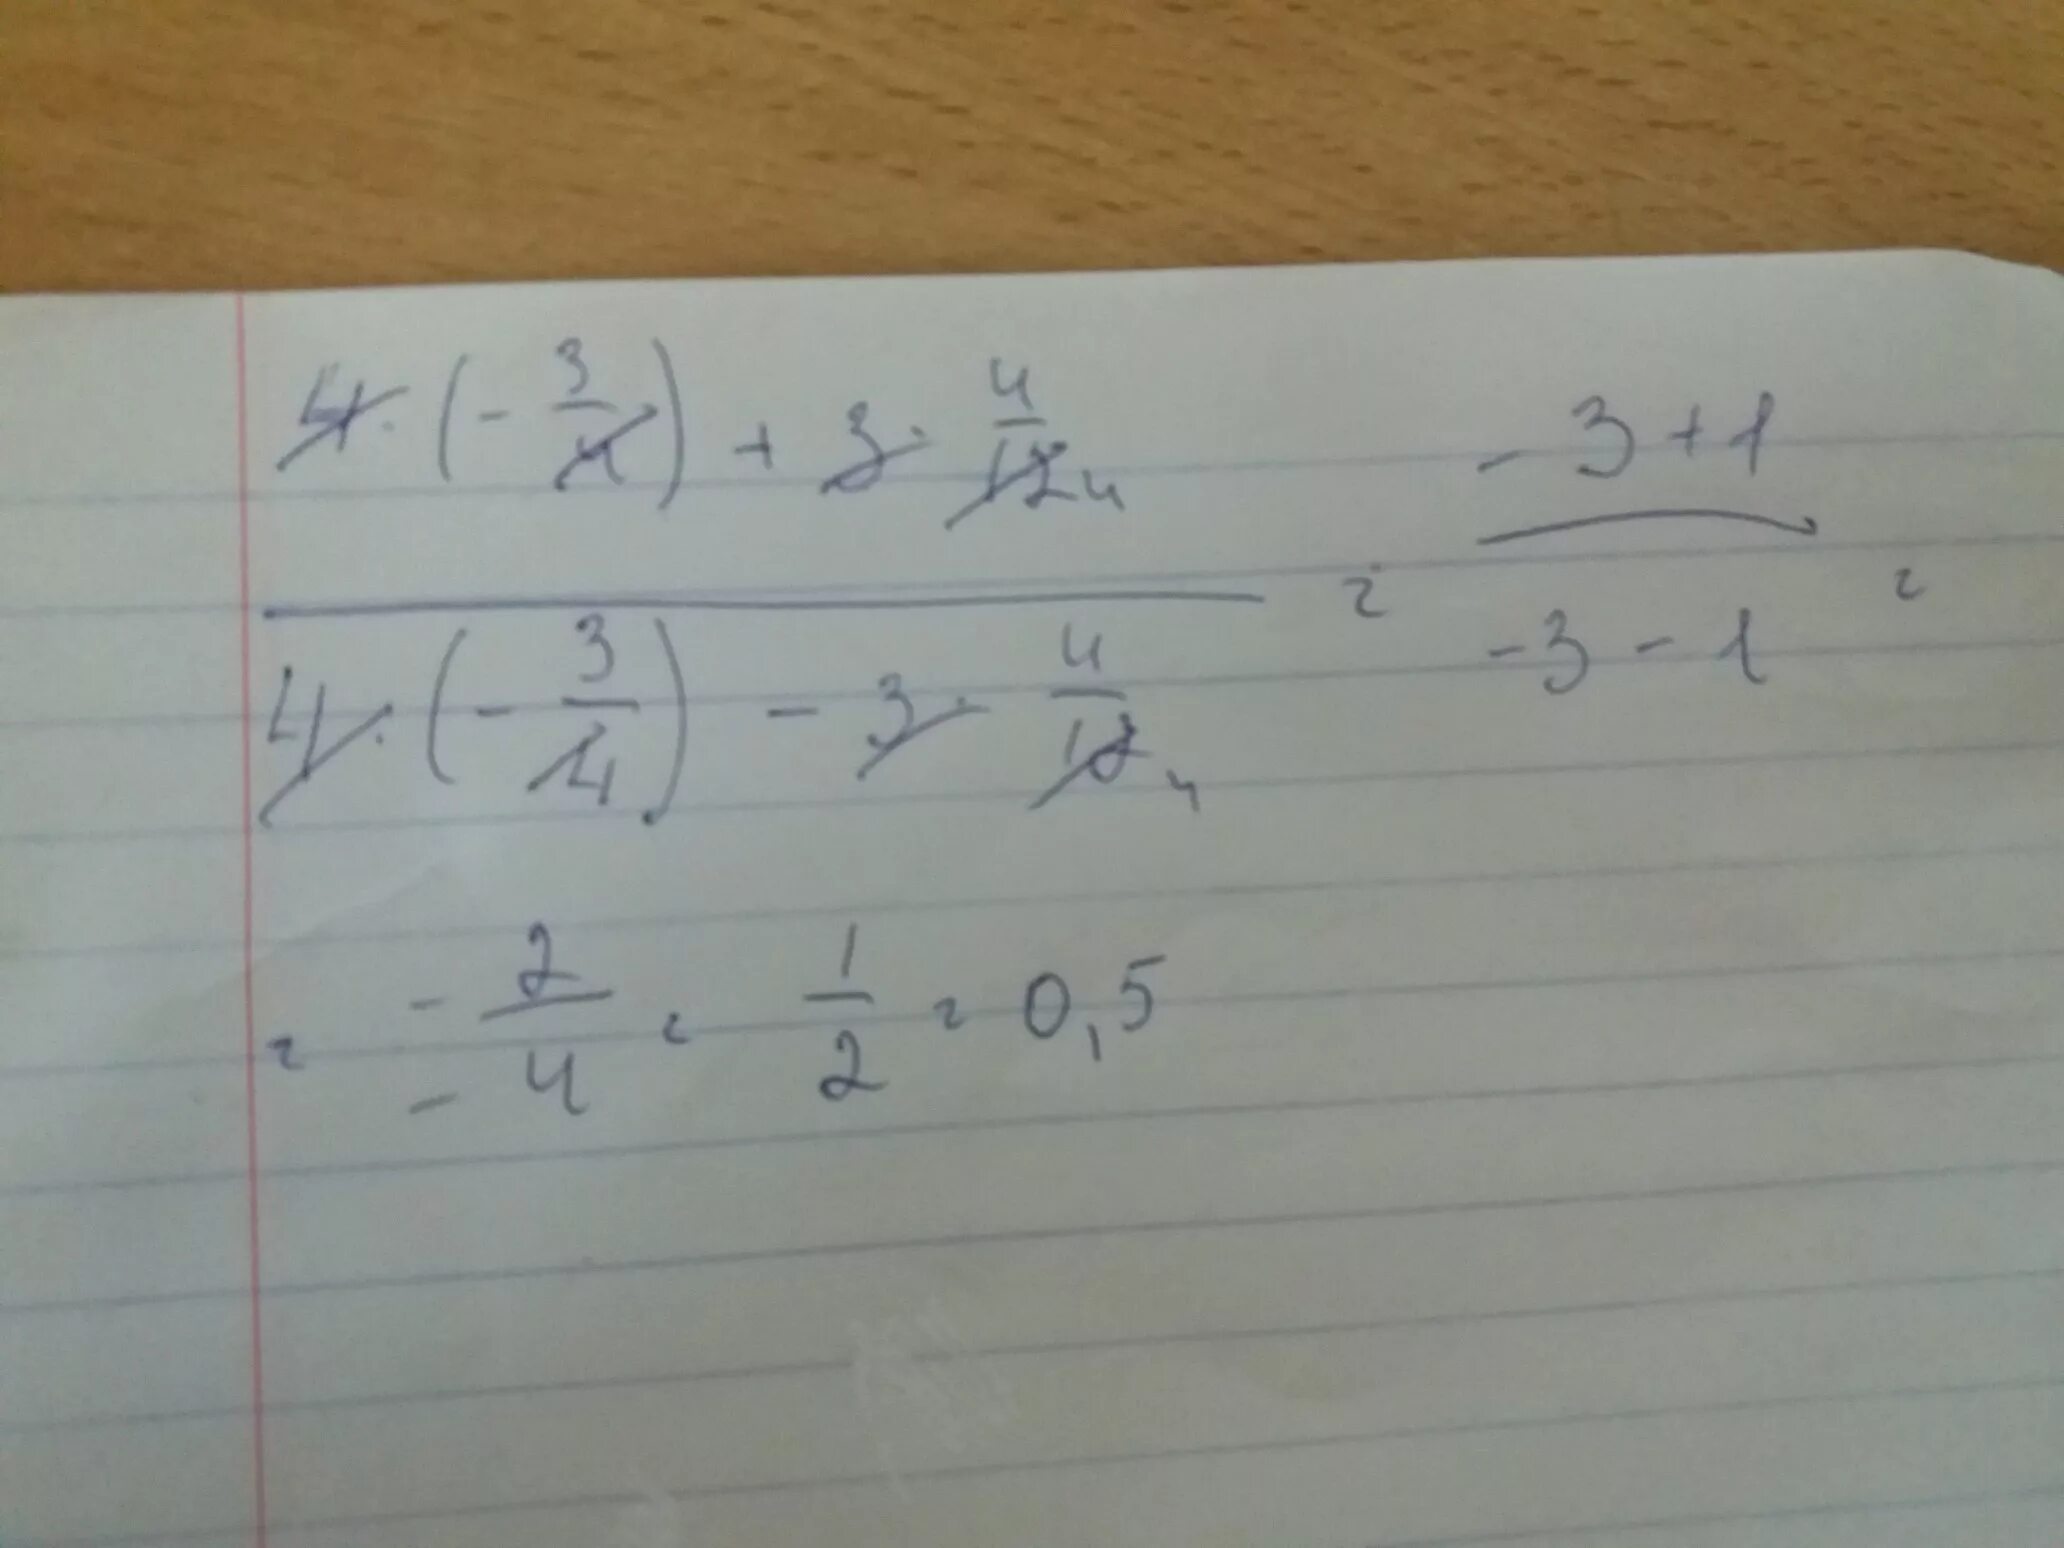 4 · (- 3/4) + 3 · 4/12 4 = - 3 + 1 =
4 · (- 3/4) - 3 · 4/12 4 - 3 - 1
= - 2/- 4 = 1/2 = 0,5